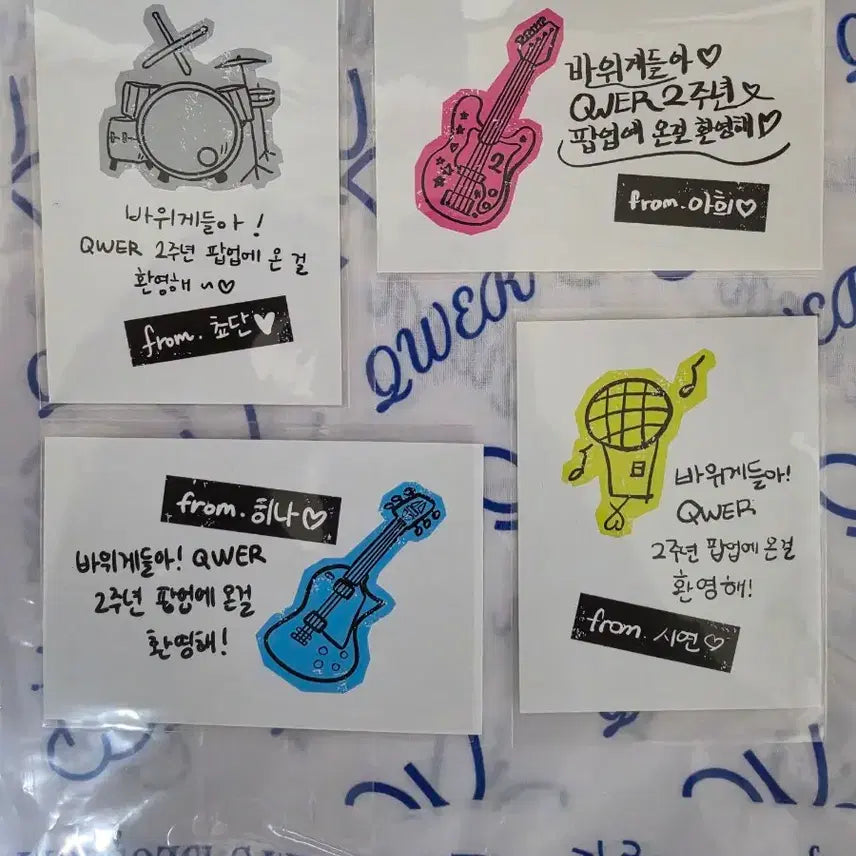 바위게들아!
QWER 2주년 팝업에 온 걸
환영해 ~♡
from. 쵸단♥
바위게들아♡
QWER 2주년♡
팝업에 온걸 환영해♡
from. 아희♡
2
QWER
from. 히나♡
바위게들아! QWER
2주년 팝업에 온걸
환영해!
바위게들아!
QWER
2주년 팝업에 온걸
환영해!
from. 시연♡